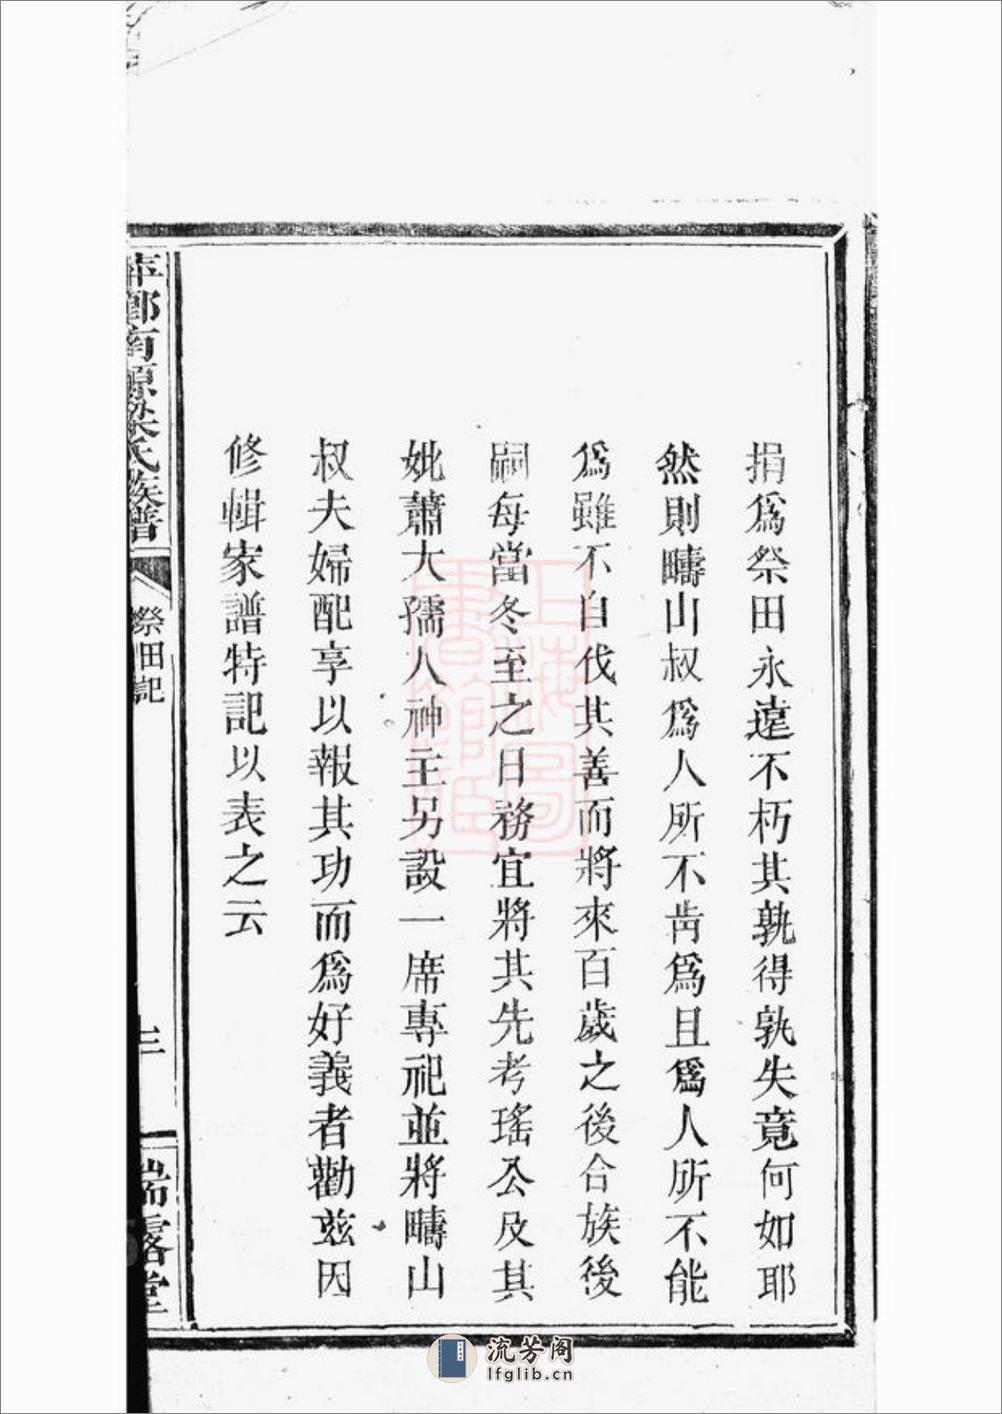 捐爲祭田永遠不朽其孰得孰失竟何如耶
然則疇山叔爲人所不肯爲且爲人所不能
爲雖不自伐其善而將來百歲之後合族後
嗣每當冬至之日務宜將其先考瑤公及其
妣蕭大孺人神主另設一席專祀並將疇山
叔夫婦配享以報其功而爲好義者勸兹因
修輯家譜特記以表之云
南源梁氏族譜
祭田記
三
瑞露堂
上海圖書館藏
流芳阁
lfglib.cn